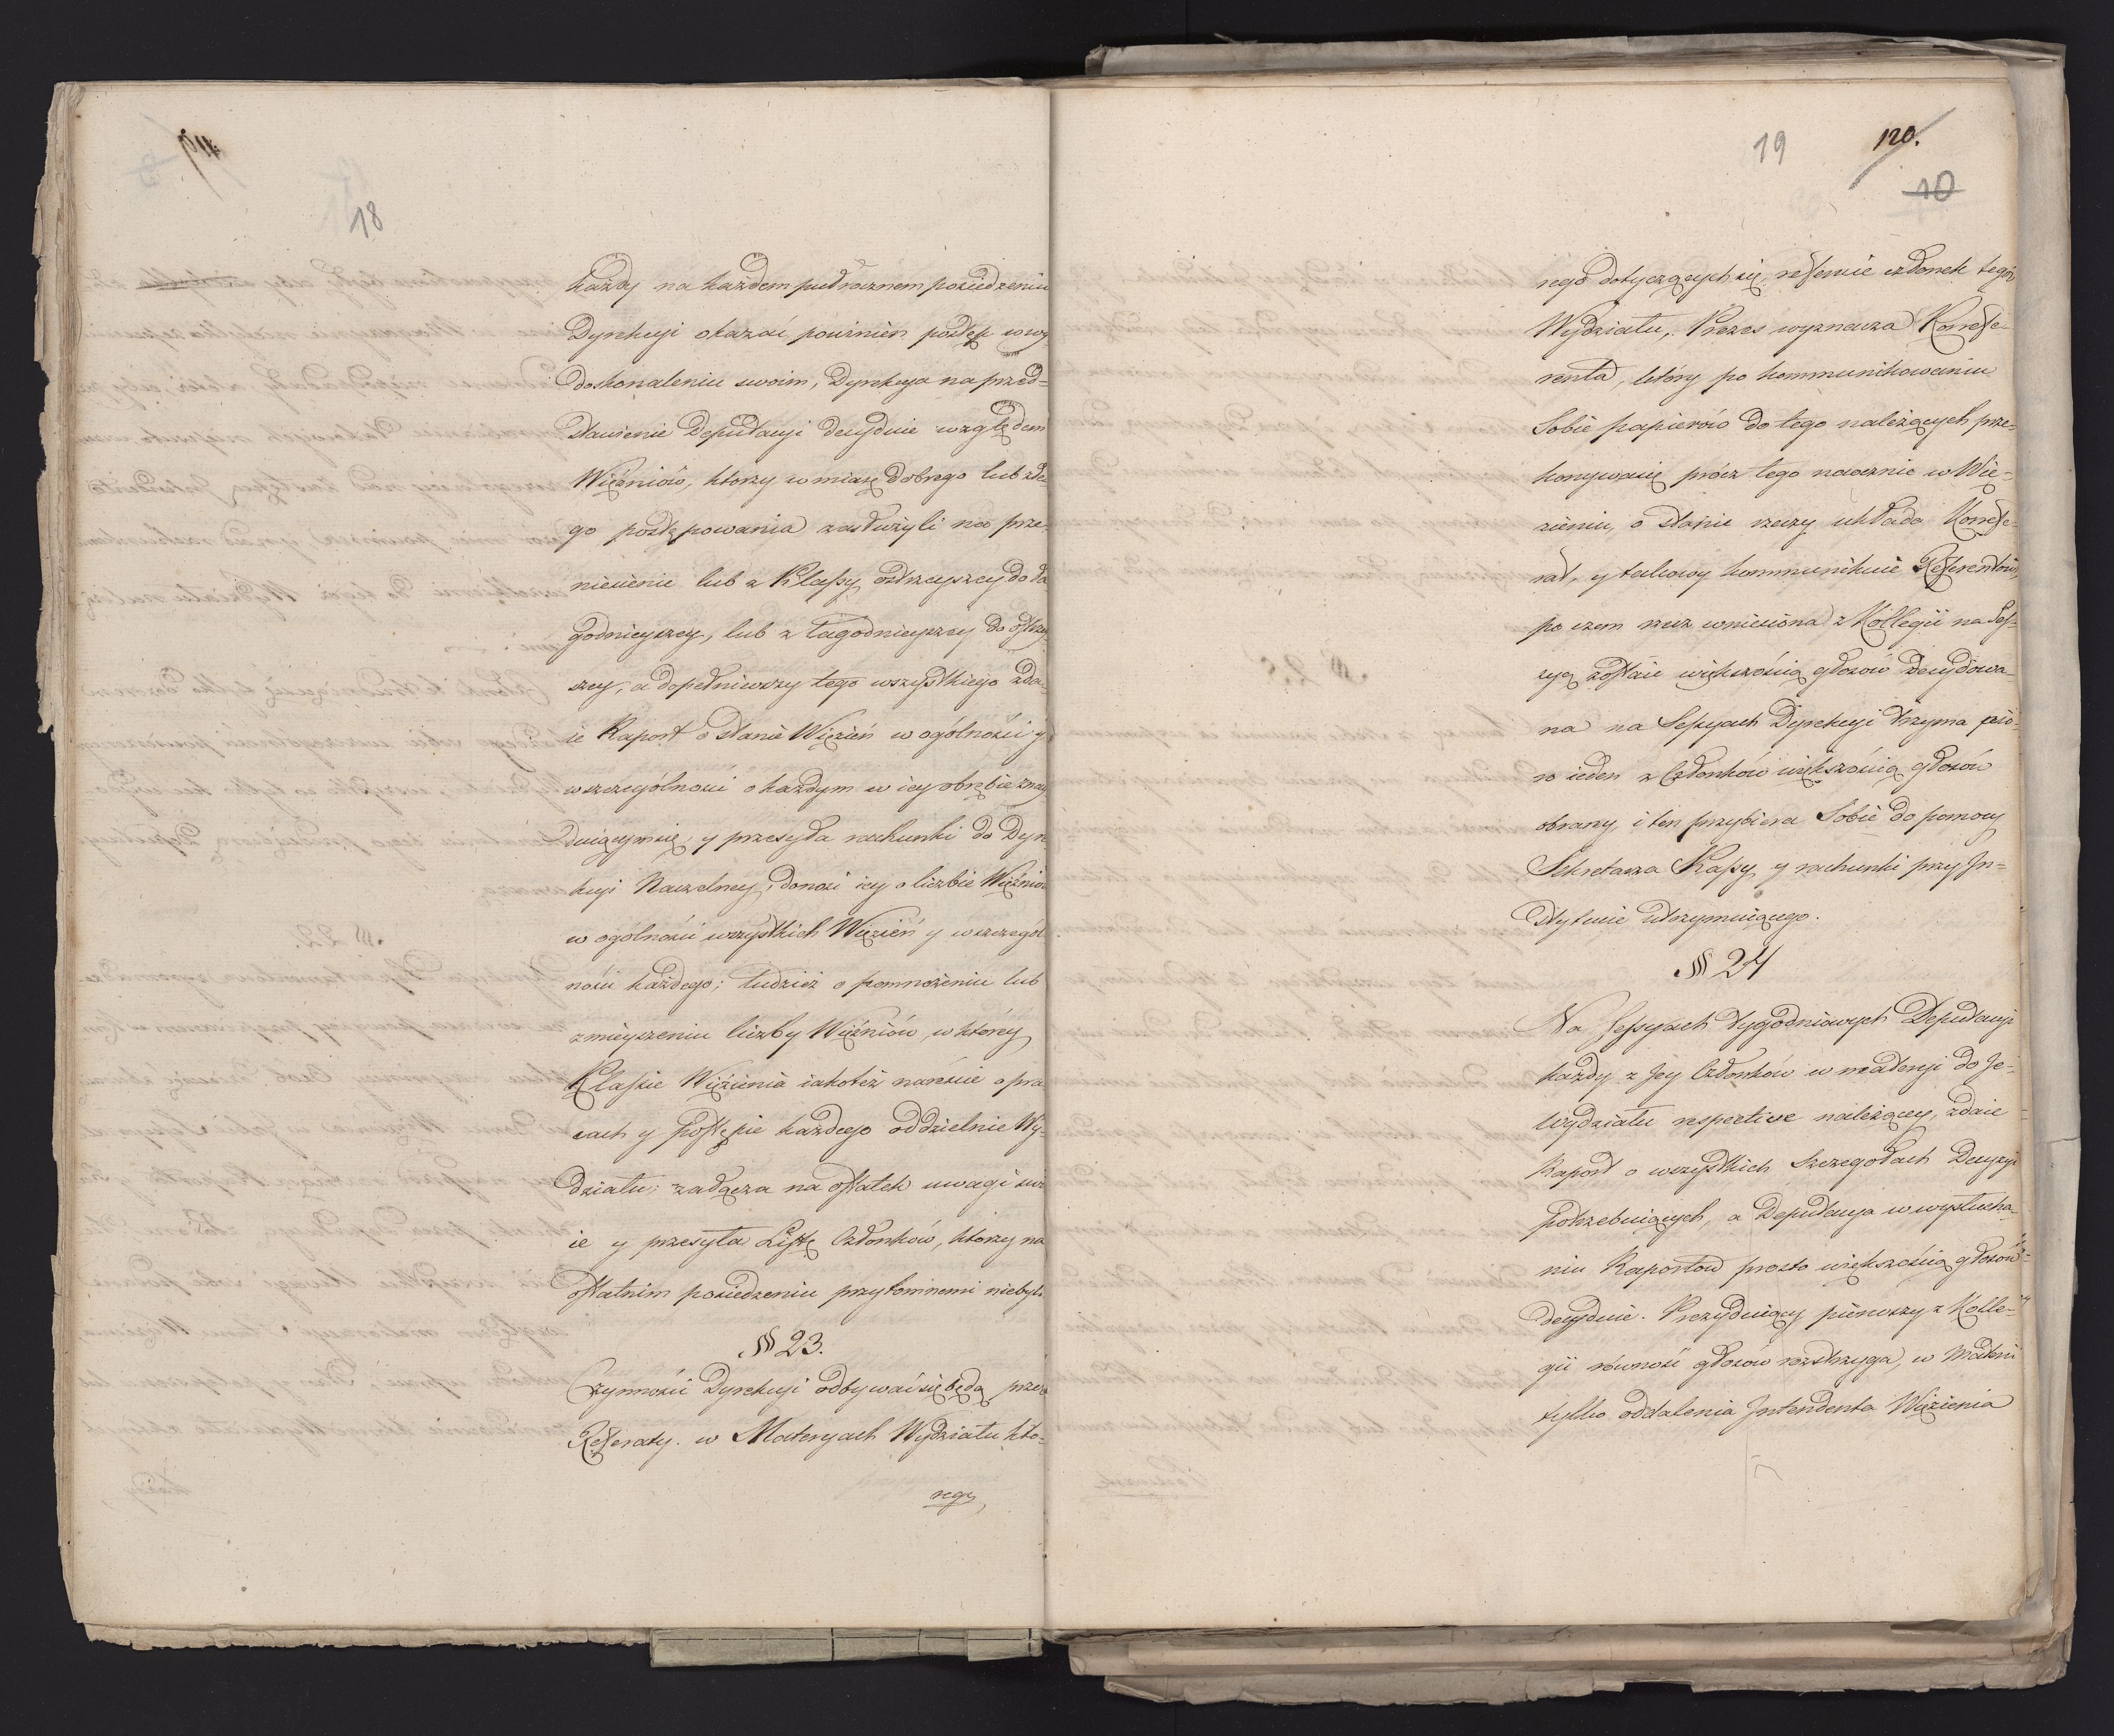 119
18
każdy na każdem pułrocznem posiedzeniu
Dyrekcyi okazać powinien postęp w wy-
doskonaleniu swoim, Dyrekcya na przed-
stawienie Deputacyi decyduie względem
Więźniów, ktorzy w miarę dobrego lub złe
go postępowania zasłużyli na prze-
niesienie lub z Klassy ostrzeyszey do ła
godnieyszey, lub z łagodnieyszey do ostrzey
szey, a dopełniwszy tego wszystkiego zda-
ie Raport o stanie Więzień w ogólności y
w szczególności o każdym w iey obrębie znay
duiącym się, y przesyła rachunki do Dyre
kcyi Naczelney, donosi iey o liczbie Więźniów
w ogólności wszystkich Więzień y w szczegól
ności każdego; tudzież o pomnożeniu lub
zmieyszeniu liczby Więźniów, w którey
Klassie Więzienia iakoteż nareście o pra
cach y postępie każdego oddzielnie Wy-
działu; załącza na ostatek uwagi swo
ie y przesyła Listę Członków, ktorzy na
ostatnim posiedzeniu przytomnemi niebyli
§ 23.
Czynności Dyrekcyi odbywać się będą przez
Referaty. w Materyach Wydziału któ-
rego
19
120.
10
rego dotyczących się, referuie członek tegoż
Wydziału, Prezes wyznacza Korrefe-
renta, który po kommunikowaniu
Sobie papierów do tego należących prze-
konywa się prócz tego naocznie w Wię-
zieniu, o stanie rzeczy układa Korrefe-
rat, y takowy kommunikuie Referentowi,
po czem rzecz wniesiona z Kollegii na Ses-
syą zostaie większością głosów decydowa-
na na Sessyach Dyrekcyi trzyma pió-
ro ieden z Członków większością głosów
obrany, i ten przybiera Sobie do pomocy
Sekretarza Kassy y rachunki przy In-
stytucie utrzymuiącego.
§ 24
Na Sessyach tygodniowych Deputacyi
każdy z Jey Członków w materyi do Je-
wydziału respective należącey, zdaie
Raport o wszystkich Szczegołach Decyzyi
potrzebuiących, a Deputacya w wysłucha-
niu Raportow prosto większością głosów
decyduie. Prezyduiący pierwszy z Kolle-
gii równość głosów rozstrzyga, w Materii
tylko oddalenia Intendenta Więzienia